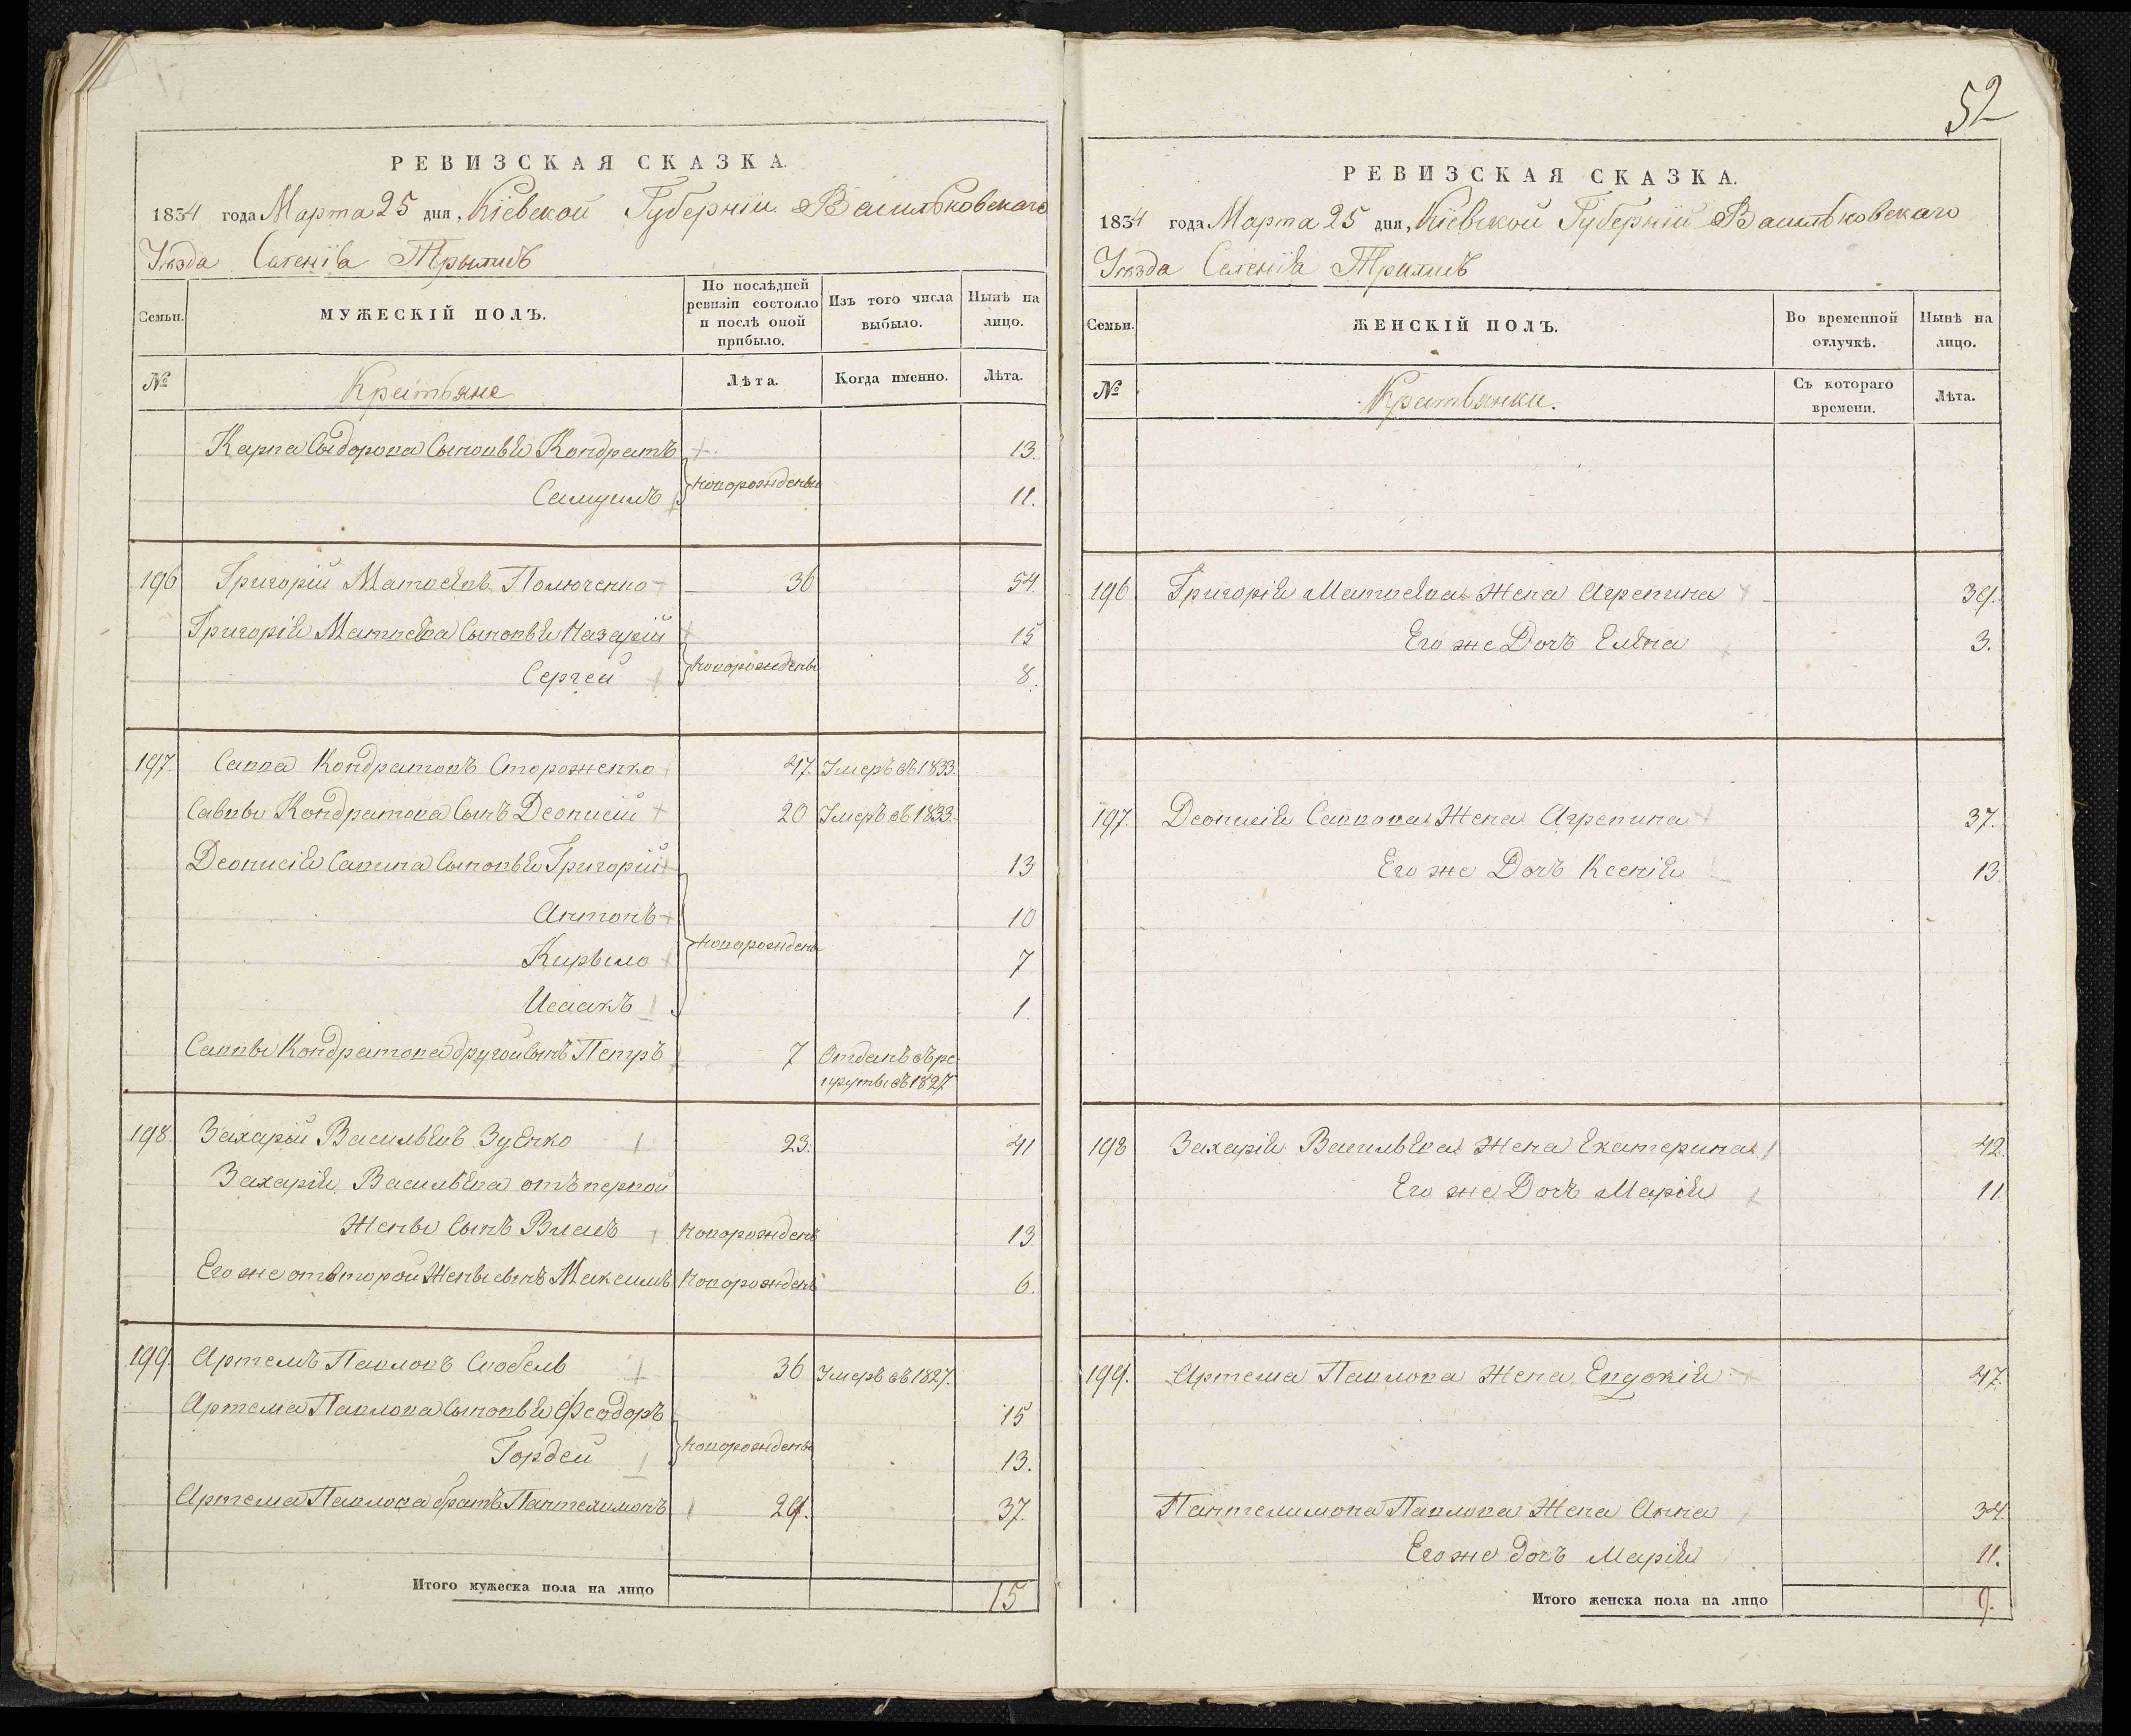 52
РЕВИЗСКАЯ СКАЗКА.
1834 года Марта 25 дня, Кіевской Губерніи Васильковскаго
Уѣзда Селенія Трылисъ
Семьи. МУЖЕСКІЙ ПОЛЪ. По послѣдней ревизіи состояло и послѣ оной прибыло. Изъ того числа выбыло. Нынѣ на лицо.
№ Крестьяне Лѣта. Когда именно. Лѣта.
Карпа Сыдорова Сыновья Кондратъ 13.
новорождены
Самуилъ 11.
196 Григорій Матвеевъ 36 54.
Григорія Матвеева Сыновья Назарій 15
новорождены
Сергей 8.
197. Савва Кондратовъ Стороженко 47. Умеръ въ 1833.
Саввы Кондратова Сынъ Деонисій 20 Умеръ въ 1833.
Деонисія Савина Сыновья Григорій 13
Антонъ 10
новорождены
Кирыло 7
Исаакъ 1.
Саввы Кондратова другой Сынъ Петръ 7 Отданъ въ ре
круты въ 1827
198 Захарій Васильевъ Зуенко 23. 41
Захарія Васильева отъ первой
Жены Сынъ Власъ новорожденъ 13.
Его же отъ второй Жены сынъ Максимъ новорожденъ 6.
199. Артемъ Павловъ 36 Умеръ въ 1827.
Артема Павлова Сыновья Феодоръ 15
новорождены
Гордей 13.
Артема Павлова братъ Пантелимонъ 37.
Итого мужеска пола на лицо 15
РЕВИЗСКАЯ СКАЗКА.
1834 года Марта 25 дня, Кіевской Губерніи Васильковскаго
Уѣзда Селенія Трилисъ
Семьи. ЖЕНСКІЙ ПОЛЪ. Во временной отлучкѣ. Нынѣ на лицо.
№ Крестьянки. Съ котораго времени. Лѣта.
196 Григорія Матвеева Жена Агрепина 39.
Его же Дочь Елена 3.
197. Деонисія Саввова Жена Агрепина 37.
Его же Дочь Ксенія 13
198 Захарія Васильева Жена Екатерина 42.
Его же Дочь Марія 11
199. Артема Павлова Жена Евдокія 47.
Пантелимона Павлова Жена Анна 34.
Его же дочь Марія 11.
Итого женска пола на лицо 9.